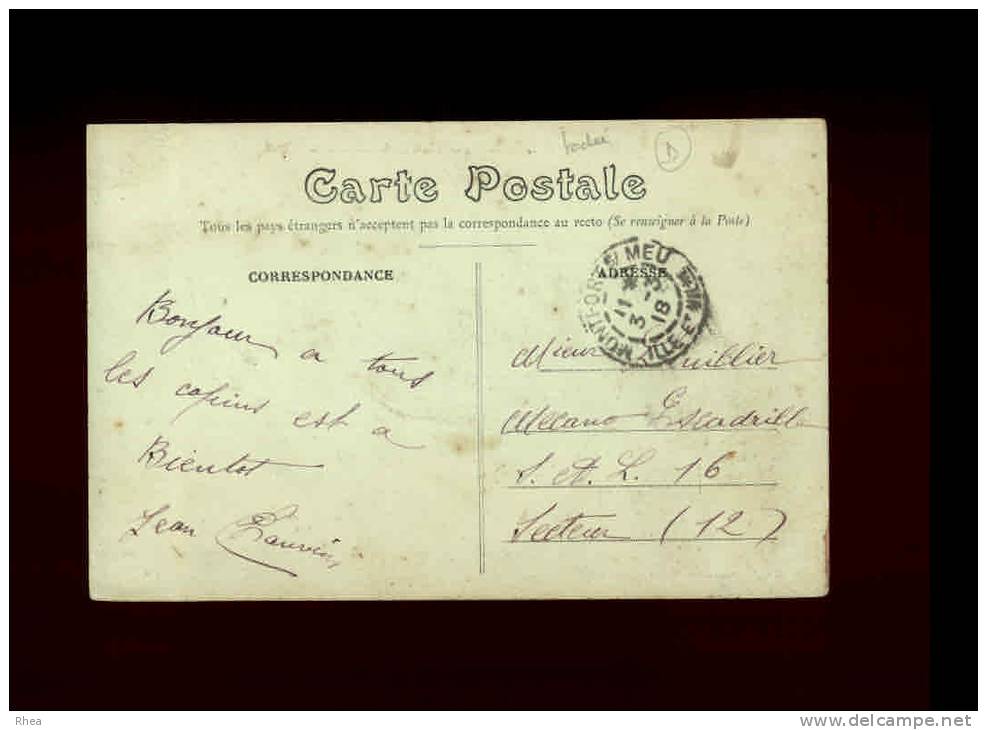 D
Carte Postale
Tous les pays étrangers n'acceptent pas la correspondance au recto (Se renseigner à la Poste)
CORRESPONDANCE
ADRESSE
MONTFORT S/ MEU
ILLE-ET-
11 *
3 18
Bonjour a tous
les copins est a
Bientot
Jean
Mecano Escadrille
S. et L. 16
Secteur (12)
Rhea
www.delcampe.net